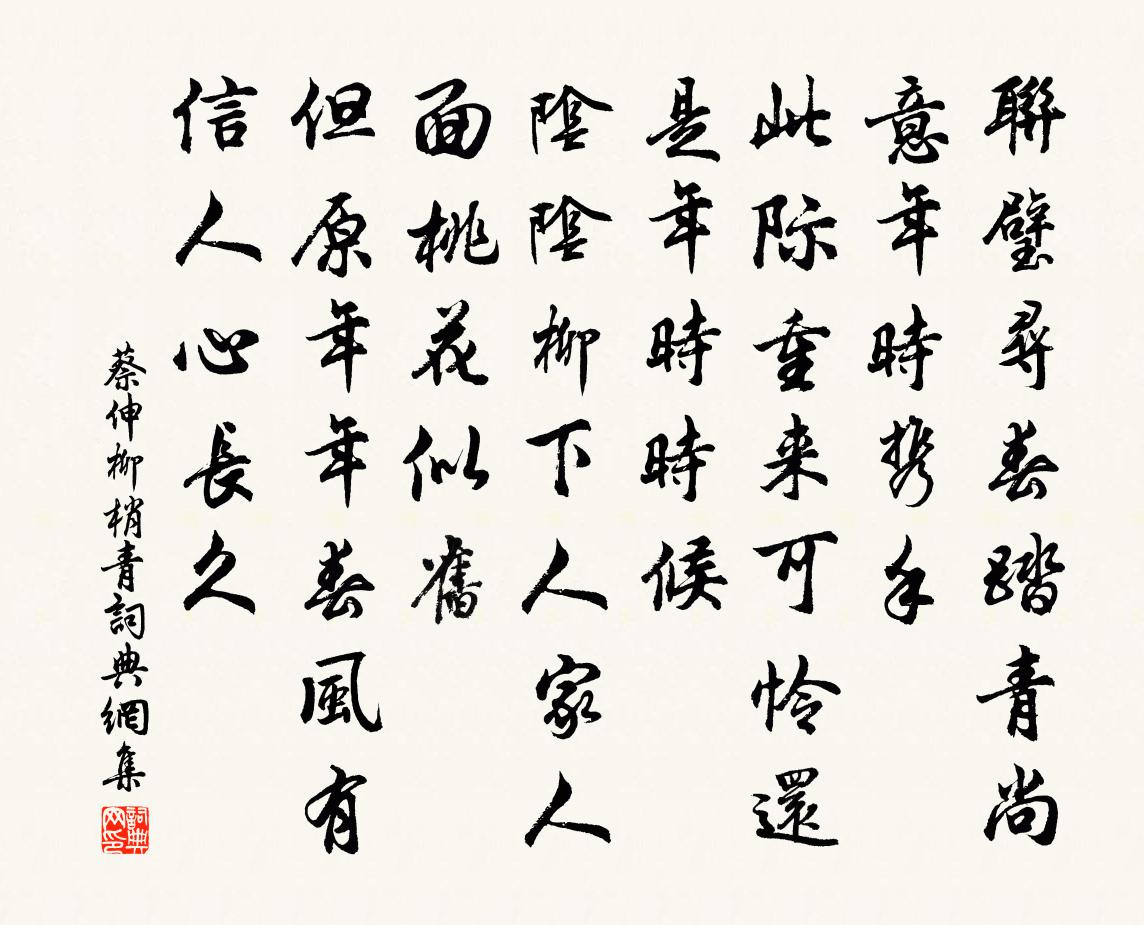 聯璧尋春踏青尚
意年時携手
此际重来可怜還
是年時時候
陰陰柳下人家人
面桃花似舊
但原年年春風有
信人心長久
蔡伸柳梢青詞典網集
詞典網印